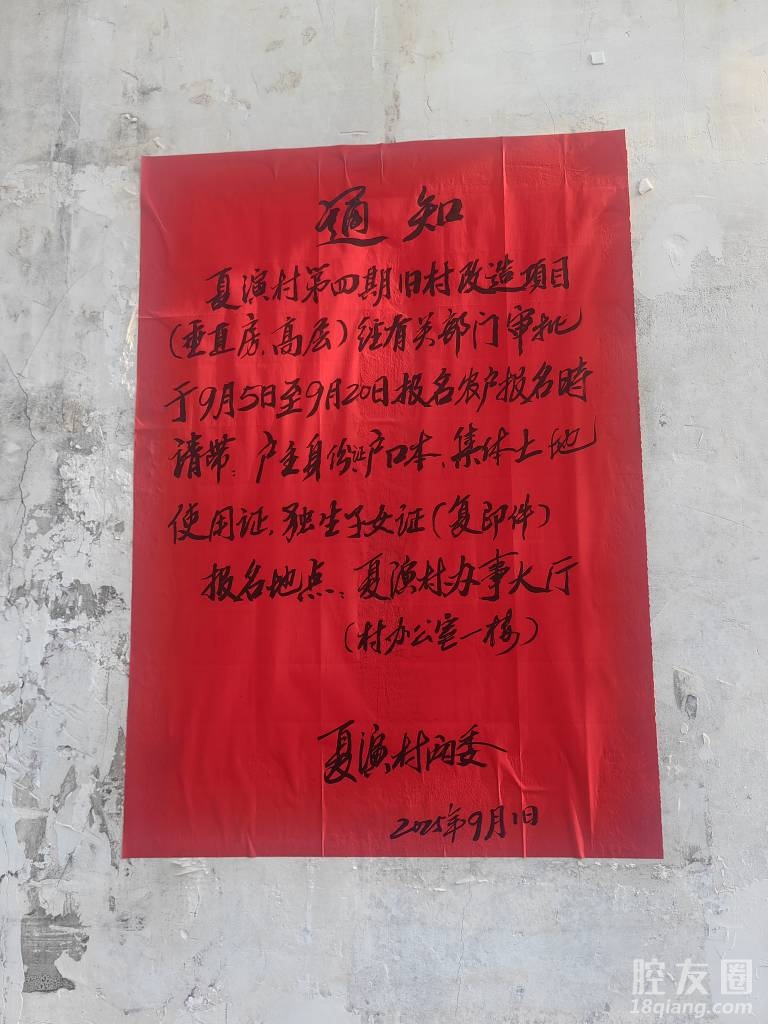 通知
夏演村第四期旧村改造项目
(垂直房、高层)经有关部门审批
于9月5日至9月20日报名农户报名時
请带:户主身份证户口本、集体土地
使用证、独生子女证(复印件)
报名地点:夏演村办事大厅
(村办公室一楼)
夏演村两委
2025年9月1日
腔友圈
18qiang.com